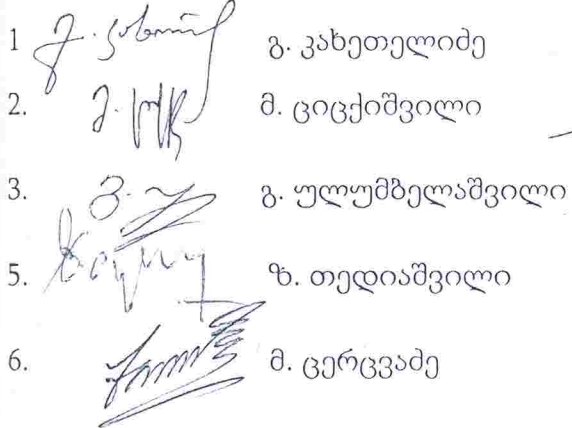 1 გ. კახეთელიძე
2. მ. ციცქიშვილი
3. გ. ულუმბელაშვილი
5. ზ. თედიაშვილი
6. მ. ცერცვაძე